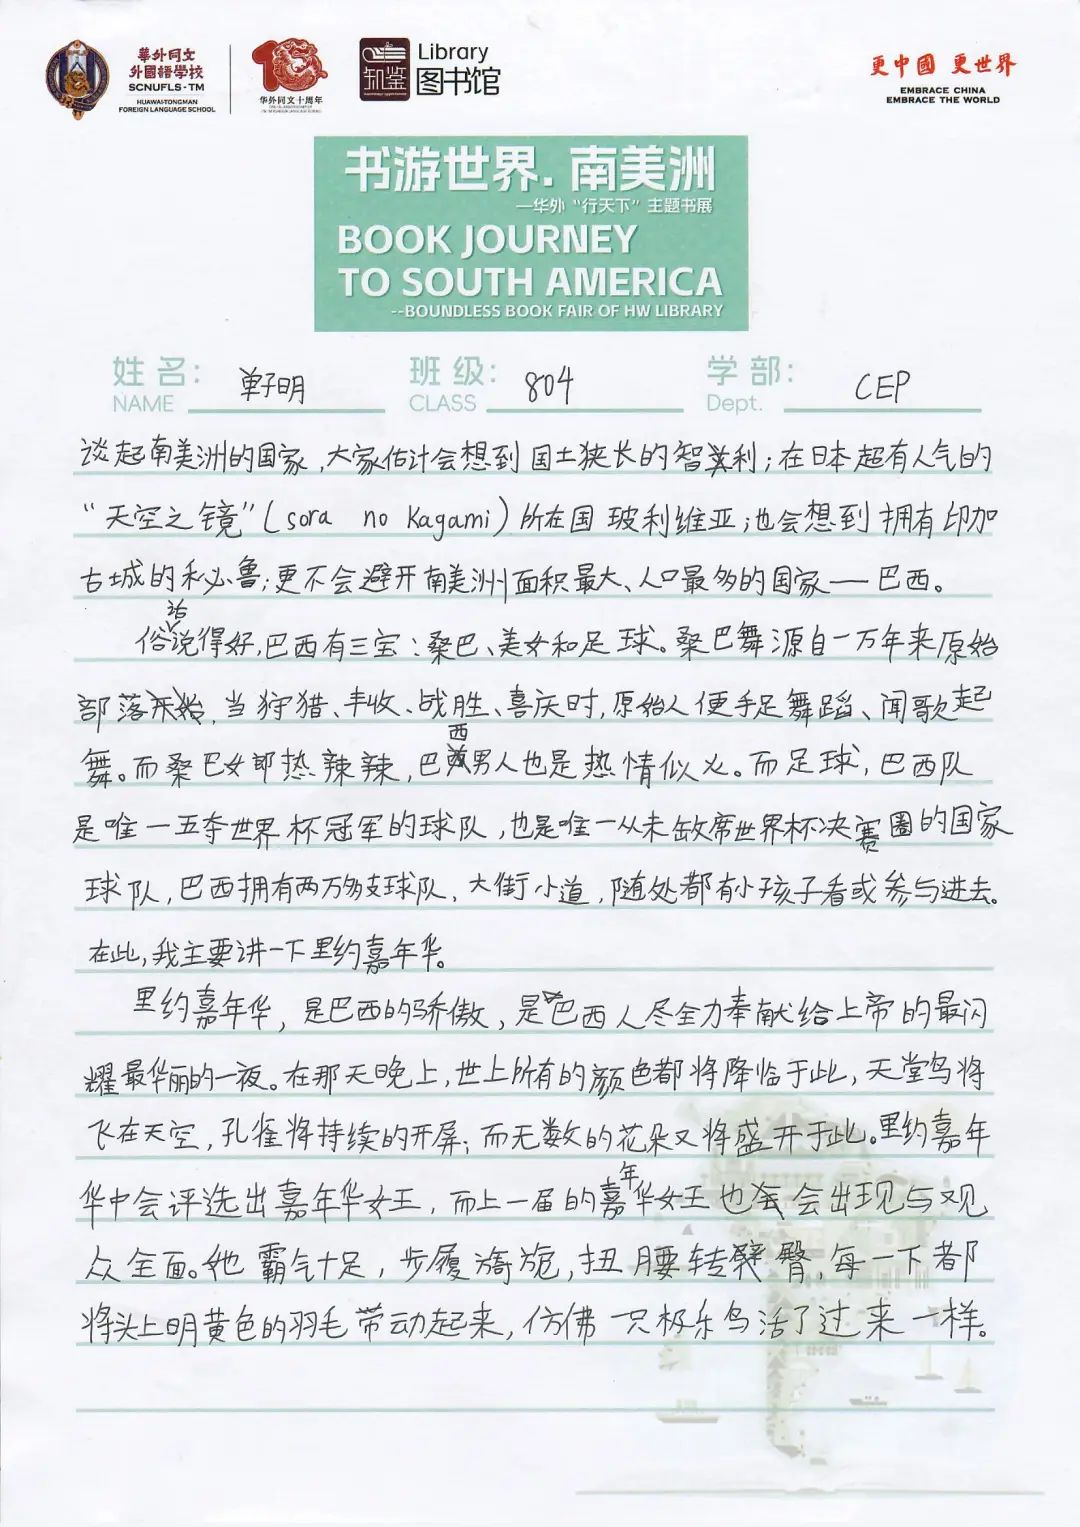 華外同文
外國語學校
SCNUFLS-TM
HUAWAI-TONGMAN
FOREIGN LANGUAGE SCHOOL
华外同文十周年
知鉴
Library
图书馆
更中國 更世界
EMBRACE CHINA
EMBRACE THE WORLD
书游世界.南美洲
—华外“行天下”主题书展
BOOK JOURNEY
TO SOUTH AMERICA
--BOUNDLESS BOOK FAIR OF HW LIBRARY
姓名: 单子明 班级: 804 学部: CEP
NAME CLASS Dept.
谈起南美洲的国家,大家估计会想到国土狭长的智利;在日本超有人气的
“天空之镜”(sora no kagami)所在国玻利维亚;也会想到拥有印加
古城的秘鲁;更不会避开南美洲面积最大、人口最多的国家——巴西。
俗话说得好,巴西有三宝:桑巴、美女和足球。桑巴舞源自一万年来原始
部落,当狩猎、丰收、战胜、喜庆时,原始人便手足舞蹈、闻歌起
舞。而桑巴女郎热辣辣,巴西男人也是热情似火。而足球,巴西队
是唯一五夺世界杯冠军的球队,也是唯一从未缺席世界杯决赛圈的国家
球队,巴西拥有两万多支球队,大街小道,随处都有小孩子看或参与进去。
在此,我主要讲一下里约嘉年华。
里约嘉年华,是巴西的骄傲,是巴西人尽全力奉献给上帝的最闪
耀最华丽的一夜。在那天晚上,世上所有的颜色都将降临于此,天堂鸟将
飞在天空,孔雀将持续的开屏;而无数的花朵又将盛开于此。里约嘉年
华中会评选出嘉年华女王,而上一届的嘉年华女王也会出现与观
众全面。她霸气十足,步履旖旎,扭腰转臀,每一下都
将头上明黄色的羽毛带动起来,仿佛一只极乐鸟活了过来一样。